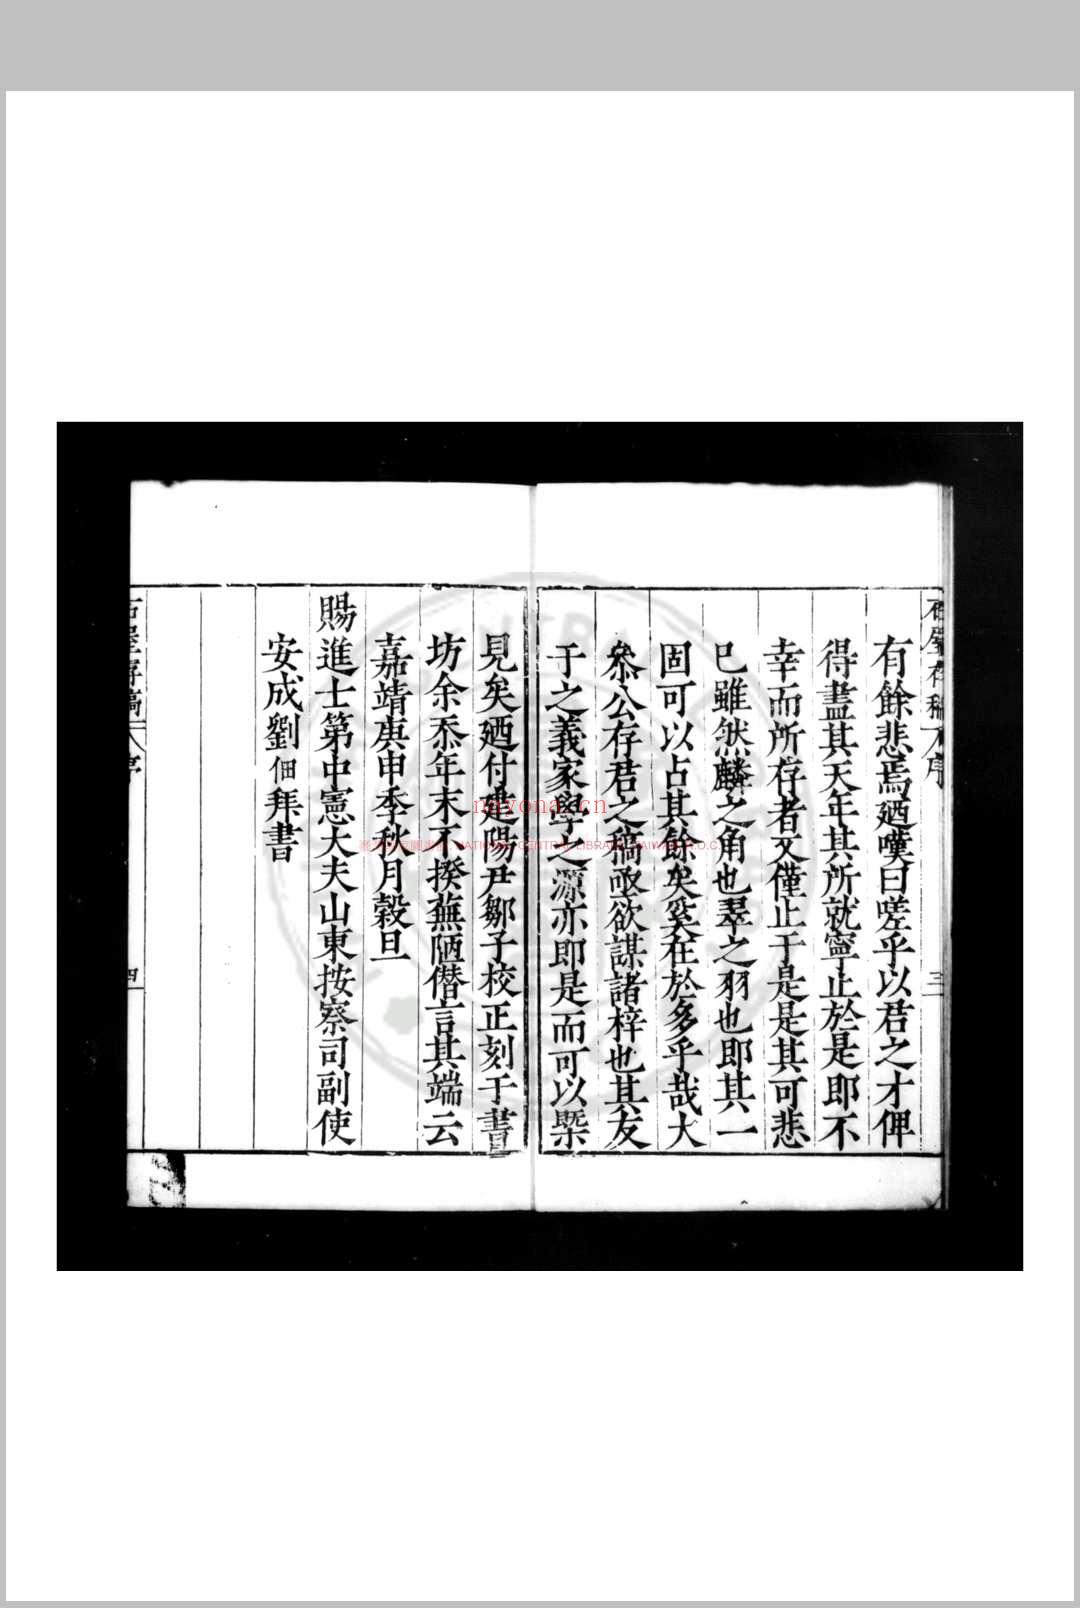 石屋存稿 序 三
有餘悲焉廼嘆曰嗟乎以君之才俾
得盡其天年其所就寧止於是即不
幸而所存者又僅止于是是其可悲
已雖然麟之角也翠之羽也即其一
固可以占其餘矣奚在於多乎哉大
叅公存君之稿亟欲謀諸梓也其友
于之義家學之源亦即是而可以槩
見矣廼付建陽尹鄒子校正刻于書
坊余忝年末不揆蕪陋僭言其端云
嘉靖庚申季秋月穀旦
賜進士第中憲大夫山東按察司副使
安成劉佃拜書
石屋存稿 序 四
nayona.cn
NATIONAL CENTRAL LIBRARY, TAIWAN R.O.C.